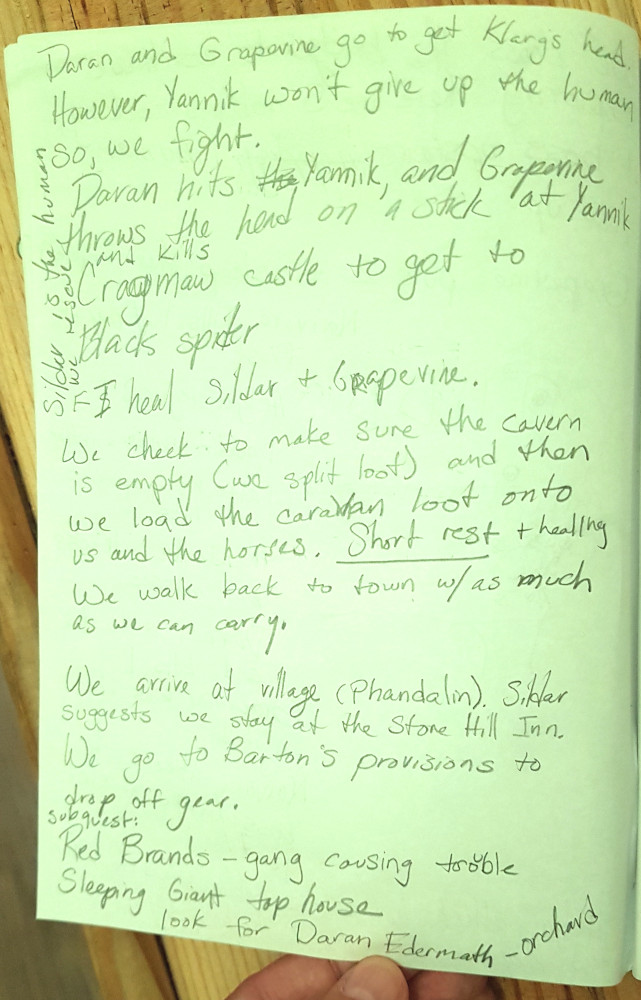 Daran and Grapevine go to get Klargs head.
However, Yannik won't give up the human
so, we fight.
Daran hits the Yannik, and Grapevine
throws the head on a stick at Yannik
and kills
Cragmaw castle to get to
Black spider
I heal Sildar + Grapevine.
Sildar is the human
we rescue
We check to make sure the cavern
is empty (we split loot) and then
we load the caravan loot onto
us and the horses. Short rest + healing
We walk back to town w/ as much
as we can carry.
We arrive at village (Phandalin). Sildar
suggests we stay at the Stone Hill Inn.
We go to Barton's provisions to
drop off gear.
subquest:
Red Brands - gang causing trouble
Sleeping Giant tap house
look for Daran Edermath - orchard